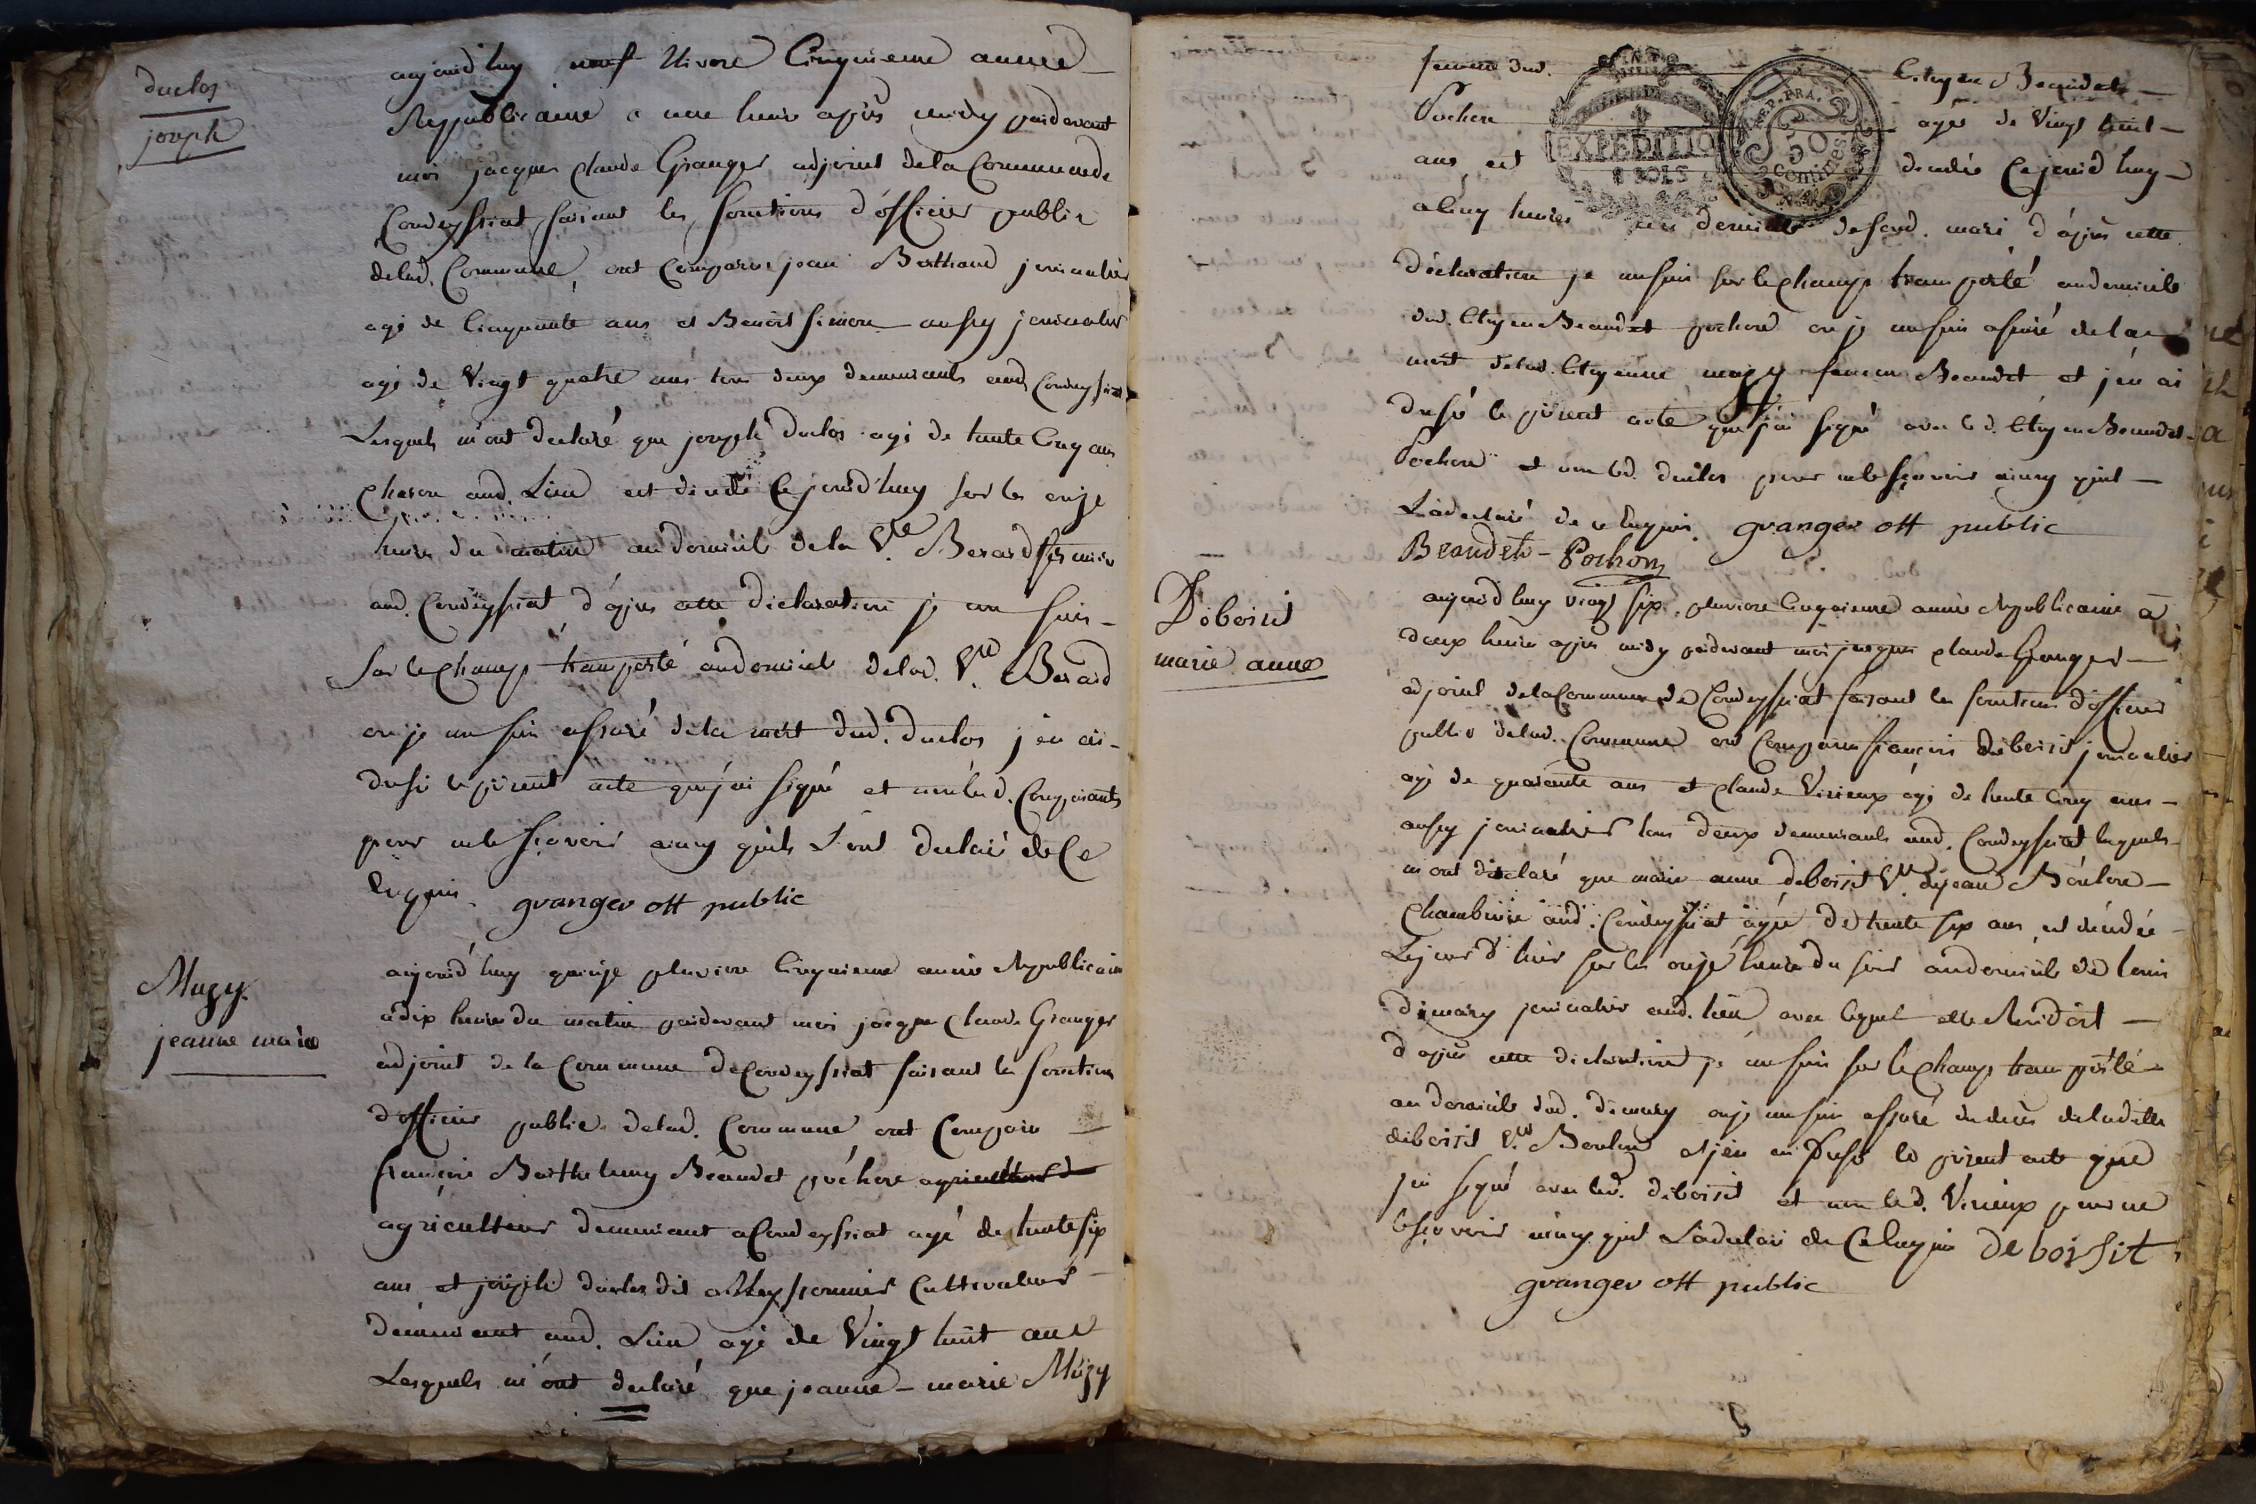 duclos
joseph
aujourd'huy neuf Nivose Cinquieme année
Republicaine a une heure après midy pardevant
moi jacques Claude Granger adjoint dela Commune de
Condeyssiat faisant les fonctions d'officier public
delad. Commune, ont Comparu jean Berthaud journalier
agé de Cinquante ans et Benoit simon aussy journalier
agé de Vingt quatre ans tous deux demeurants aud. Condeyssiat
Lesquels m'ont declaré que joseph duclos agé de trente Cinq ans
aud. Lieu est décédé Cejourd'huy sur les onze
heures du matin audomicile dela Vve Berard fermiere
aud. Condeyssiat d'après cette déclaration je me suis
sur le Champ transporté audomicile delad. Vve Berard
ou je me suis assuré dela mort dud. duclos j'en ai
dressé le présent acte que j'ai signé et non lesd. Comparants
pour ne le sçavoir ainsy quils L'ont declaré de Ce
Enquis. granger off public
Muzy.
jeanne marie
aujourd'huy quinze pluviose Cinquieme année Republicaine
a dix heures du matin pardevant moi jacque Claude Granger
adjoint de la Commune de Condeyssiat faisant les fonctions
d'officier public delad. Commune ont Comparu
françois Barthelemy Beaudet pochon agriculteur
agriculteur demeurant a Condeyssiat agé de trente six
ans et joseph duclos dit Cultivateur
demeurant aud. Lieu agé de Vingt huit ans
Lesquels m'ont declaré que jeanne-marie Muzy
femme dud. Citoyen Beaudet
Pochon agée de Vingt huit
EXPEDITION
4 SOLS
REP. FRA.
50
centimes
ans est décédée Cejourd'huy
a Cinq heures au domicile desond. mari d'après cette
déclaration je me suis sur le Champ transporté audomicile
dud. Citoyen Beaudet pochon ou je me suis assuré dela
mort delad. Citoyenne muzy femme Beaudet et j'en ai
dressé le présent acte que j'ai signé avec led. Citoyen Beaudet
Pochon et non led. duclos pour ne le sçavoir ainsy quil
L'a declaré de ce Enquis. granger off public
Beaudet-Pochon
Deboisit
marie anne
aujourd'huy vingt six pluviose Cinquieme année Republicaine à
deux heures après midy pardevant moi jacques Claude Granger
adjoint dela Commune de Condeyssiat faisant les fonctions d'officier
public delad. Commune ont Comparu françois deboisit journalier
agé de quarante ans et Claude Virieux agé de trente Cinq ans
aussy journalier tous deux demeurants aud. Condeyssiat lesquels
m'ont déclaré que marie anne deboisit Vve de jean
aud. Condeyssiat agée de trente six ans est décédée
Lejour d'hier sur les onze heures du soir audomicile de
journalier aud. lieu avec lequel elle Residoit
d'après cette déclaration je me suis sur le Champ transporté
au domicile dud. ou je me suis assuré du décès deladitte
deboisit Vve et j'en ai Dressé le présent acte que
j'ai signé avec led. deboisit et non led. Virieux pour ne
le sçavoir ainsy quil L'a declaré de Ce Enquis de boissit
granger off public